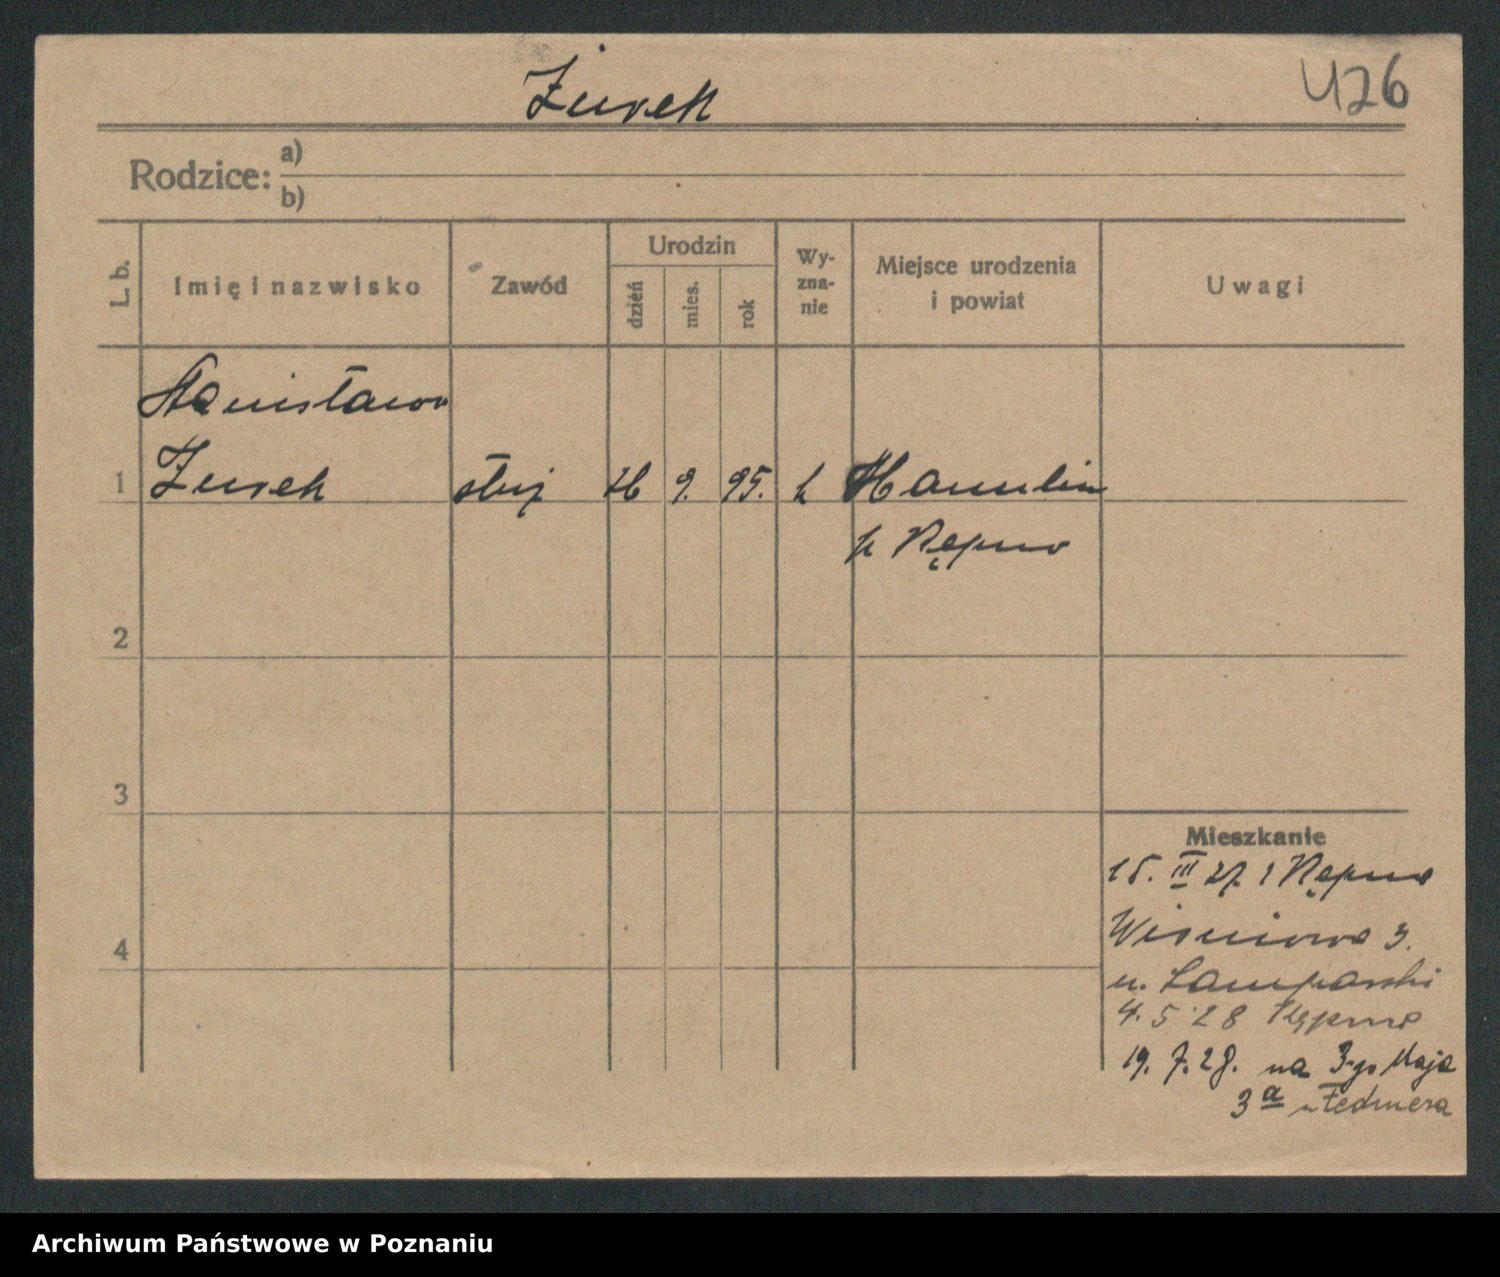 Żurek
426
Rodzice: a)
b)
L. b.
Imię i nazwisko
Zawód
Urodzin
dzień
mies.
rok
Wy-
zna-
nie
Miejsce urodzenia
i powiat
Uwagi
Stanisława
1 Żurek służ 26 9. 95. k Hanulin
p Kępno
2
3
4
Mieszkanie
15. III 27. z Kępna
Wiśniowa 3.
u. Lamparski
4. 5 28 Kępno
19. 7. 28. na 3-go Maja
3a u Fechnera
Archiwum Państwowe w Poznaniu